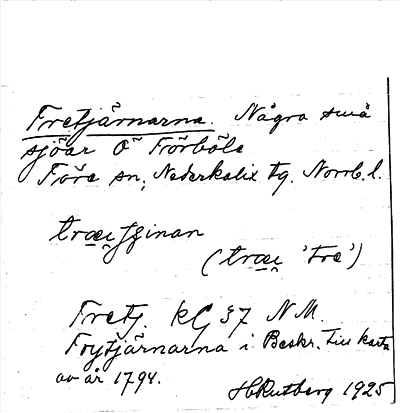 Tretjärnarna. Några små
sjöar Ö Törböle
Töre sn, Nederkalix tg. Norrb. l.
(træi̯ 'tre')
Tretj. kG 37 NM.
Toytjärnarna i Beskr. till karta
av år 1794.
HRutberg 1925